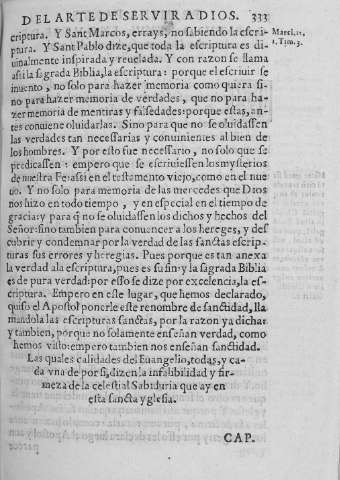 DEL ARTE DE SERVIR A DIOS. 333
criptura. Y Sant Marcos, errays, no sabiendo la escri-
ptura. Y Sant Pablo dize, que toda la escriptura es di-
uinalmente inspirada y reuelada. Y con razon se llama
assi la sagrada Biblia, la escriptura: porque el escriuir se
inuento, no solo para hazer memoria como quiera si-
no para hazer memoria de verdades, que no para ha-
zer memoria de mentiras y falsedades: porque estas, an-
tes conuiene oluidarlas. Sino para que no se oluidassen
las verdades tan necessarias y conuinientes al bien de
los hombres. Y por esto fue necessario, no solo que se
predicassen: empero que se escriuiessen los mysterios
de nuestra Fe: assi en el testamento viejo, como en el nue
uo. Y no solo para memoria de las mercedes que Dios
nos hizo en todo tiempo, y en especial en el tiempo de
gracia: y para q̃ no se oluidassen los dichos y hechos del
Señor: sino tambien para conuencer a los hereges, y des
cubrir y condemnar por la verdad de las sanctas escrip-
turas sus errores y heregias. Pues porque es tan anexa
la verdad ala escriptura, pues es su fin: y la sagrada Biblia
es de pura verdad: por esso se dize por excelencia, la es-
criptura. Empero en este lugar, que hemos declarado,
quiso el Apostol ponerle este renombre de sanctidad, lla
mandola las escripturas sanctas, por la razon ya dicha:
y tambien, porque no solamente enseñan verdad, como
hemos visto: empero tambien nos enseñan sanctidad.
Las quales calidades del Euangelio, todas, y ca-
da vna de por si, dizen la infalibilidad y fir-
meza de la celestial Sabiduria que ay en
esta sancta yglesia.
CAP.
Marci. 12.
1. Tim. 3.